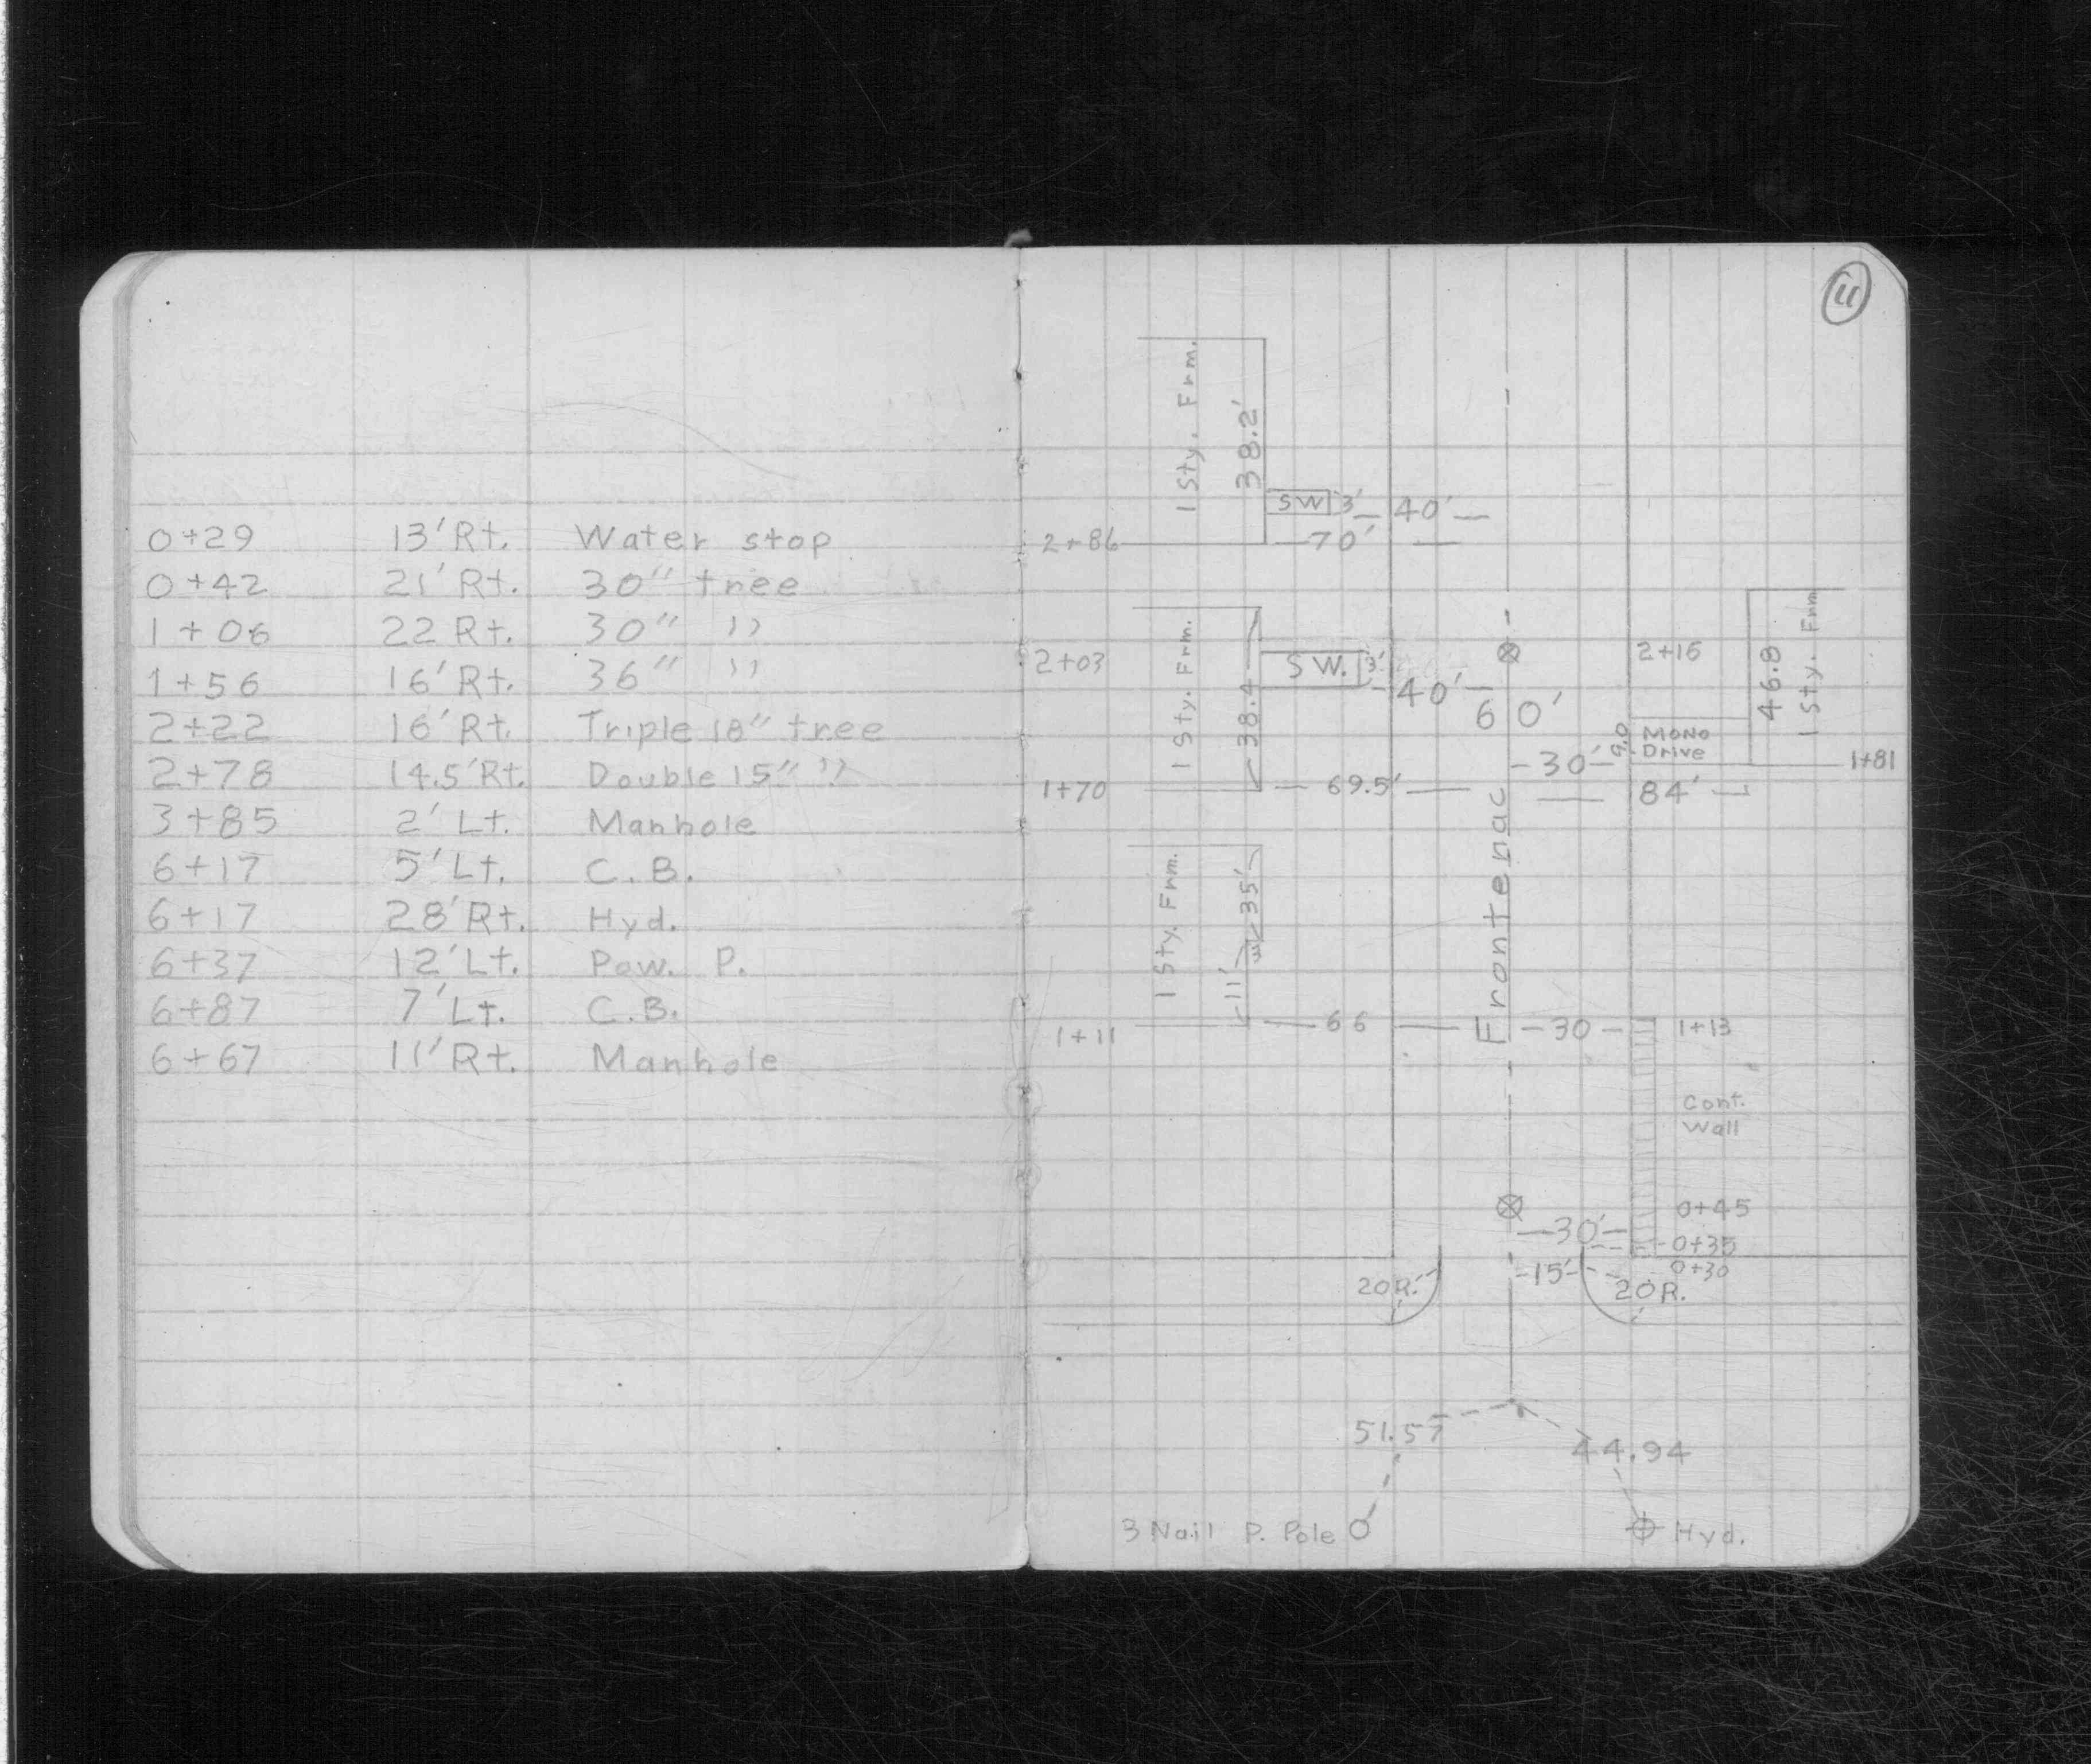 0+29 13' Rt. Water stop
0+42 21' Rt. 30" tree
1+06 22 Rt. 30" ''
1+56 16' Rt. 36" ''
2+22 16' Rt. Triple 18" tree
2+78 14.5' Rt. Double 15" ''
3+85 2' Lt. Manhole
6+17 5' Lt. C.B.
6+17 28' Rt. Hyd.
6+37 12' Lt. Pow. P.
6+87 7' Lt. C.B.
6+67 11' Rt. Manhole
11
1 Sty. Frm.
38.2'
SW 3' 40'
2+86 70'
1 Sty. Frm.
38.4
2+03 SW. 3' 2+16
40'
60'
46.8
1 Sty. Frm
9.0 MONO
Drive
30' 1+81
1+70 69.5' 84'
Frontenac
1 Sty. Frm.
35'
11'
66 30 1+13
1+11
Cont.
Wall
0+45
30'
0+35
15' 0+30
20R. 20R.
51.57
44.94
3 Nail P. Pole Hyd.